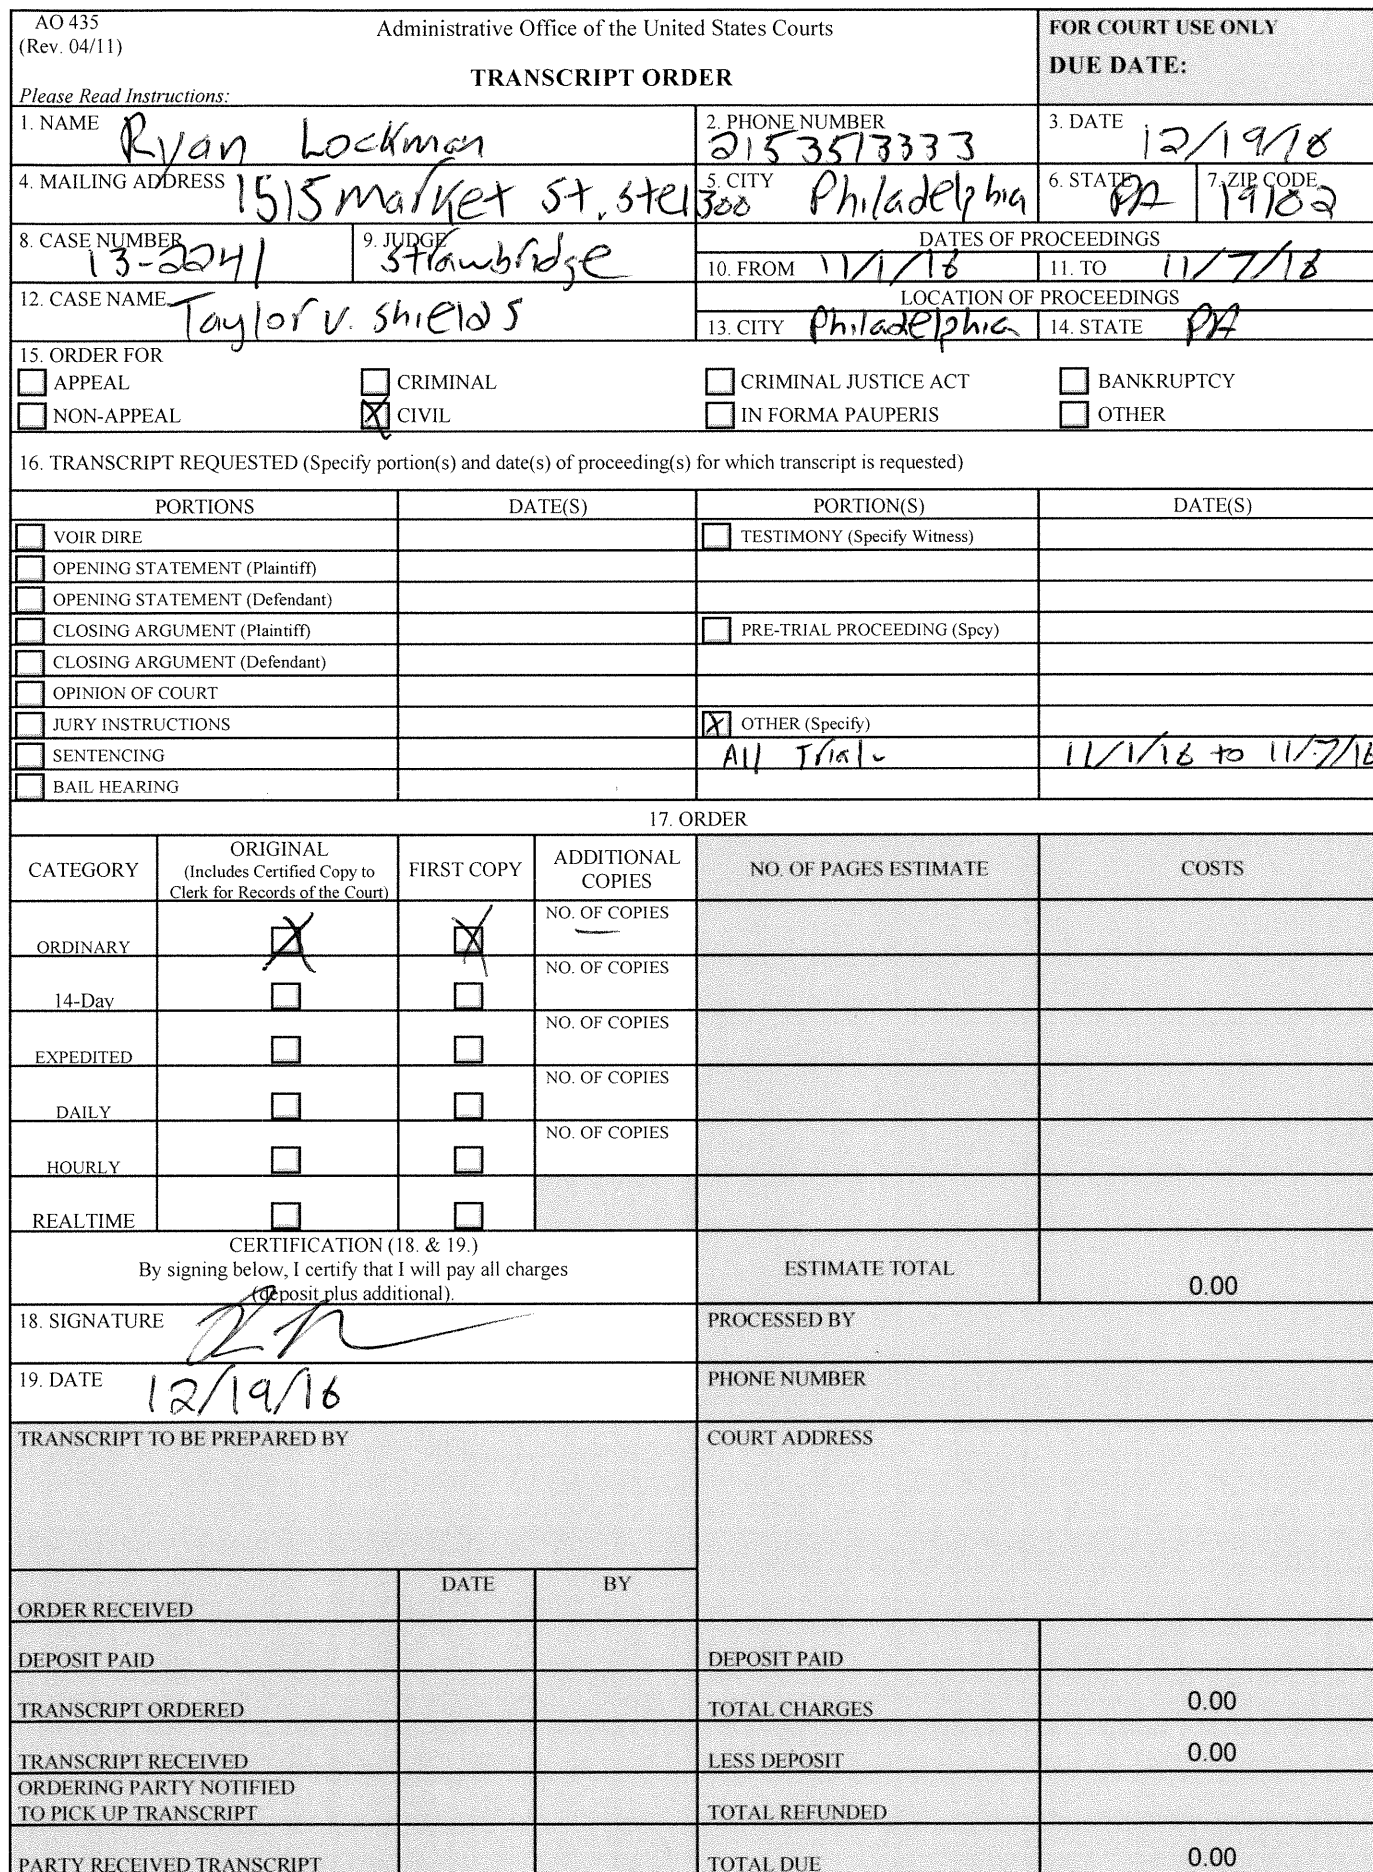 AO 435
(Rev. 04/11)
Administrative Office of the United States Courts
TRANSCRIPT ORDER
Please Read Instructions:
FOR COURT USE ONLY
DUE DATE:
1. NAME Ryan Lockman
2. PHONE NUMBER 2153513333
3. DATE 12/19/16
4. MAILING ADDRESS 1515 market St. Ste 1300
5. CITY Philadelphia
6. STATE PA
7. ZIP CODE 19102
8. CASE NUMBER 13-2241
9. JUDGE Strawbridge
DATES OF PROCEEDINGS
10. FROM 11/1/16
11. TO 11/7/16
12. CASE NAME Taylor v. Shields
LOCATION OF PROCEEDINGS
13. CITY Philadelphia
14. STATE PA
15. ORDER FOR
APPEAL CRIMINAL CRIMINAL JUSTICE ACT BANKRUPTCY
NON-APPEAL X CIVIL IN FORMA PAUPERIS OTHER
16. TRANSCRIPT REQUESTED (Specify portion(s) and date(s) of proceeding(s) for which transcript is requested)
PORTIONS DATE(S) PORTION(S) DATE(S)
VOIR DIRE TESTIMONY (Specify Witness)
OPENING STATEMENT (Plaintiff)
OPENING STATEMENT (Defendant)
CLOSING ARGUMENT (Plaintiff) PRE-TRIAL PROCEEDING (Spcy)
CLOSING ARGUMENT (Defendant)
OPINION OF COURT
JURY INSTRUCTIONS X OTHER (Specify)
SENTENCING All Trial 11/1/16 to 11/7/16
BAIL HEARING
17. ORDER
CATEGORY
ORIGINAL
(Includes Certified Copy to
Clerk for Records of the Court)
FIRST COPY
ADDITIONAL
COPIES
NO. OF PAGES ESTIMATE
COSTS
ORDINARY X X NO. OF COPIES —
14-Day NO. OF COPIES
EXPEDITED NO. OF COPIES
DAILY NO. OF COPIES
HOURLY NO. OF COPIES
REALTIME
CERTIFICATION (18. & 19.)
By signing below, I certify that I will pay all charges
(deposit plus additional).
ESTIMATE TOTAL 0.00
18. SIGNATURE
PROCESSED BY
19. DATE 12/19/16
PHONE NUMBER
TRANSCRIPT TO BE PREPARED BY
COURT ADDRESS
DATE BY
ORDER RECEIVED
DEPOSIT PAID DEPOSIT PAID
TRANSCRIPT ORDERED TOTAL CHARGES 0.00
TRANSCRIPT RECEIVED LESS DEPOSIT 0.00
ORDERING PARTY NOTIFIED
TO PICK UP TRANSCRIPT TOTAL REFUNDED
PARTY RECEIVED TRANSCRIPT TOTAL DUE 0.00